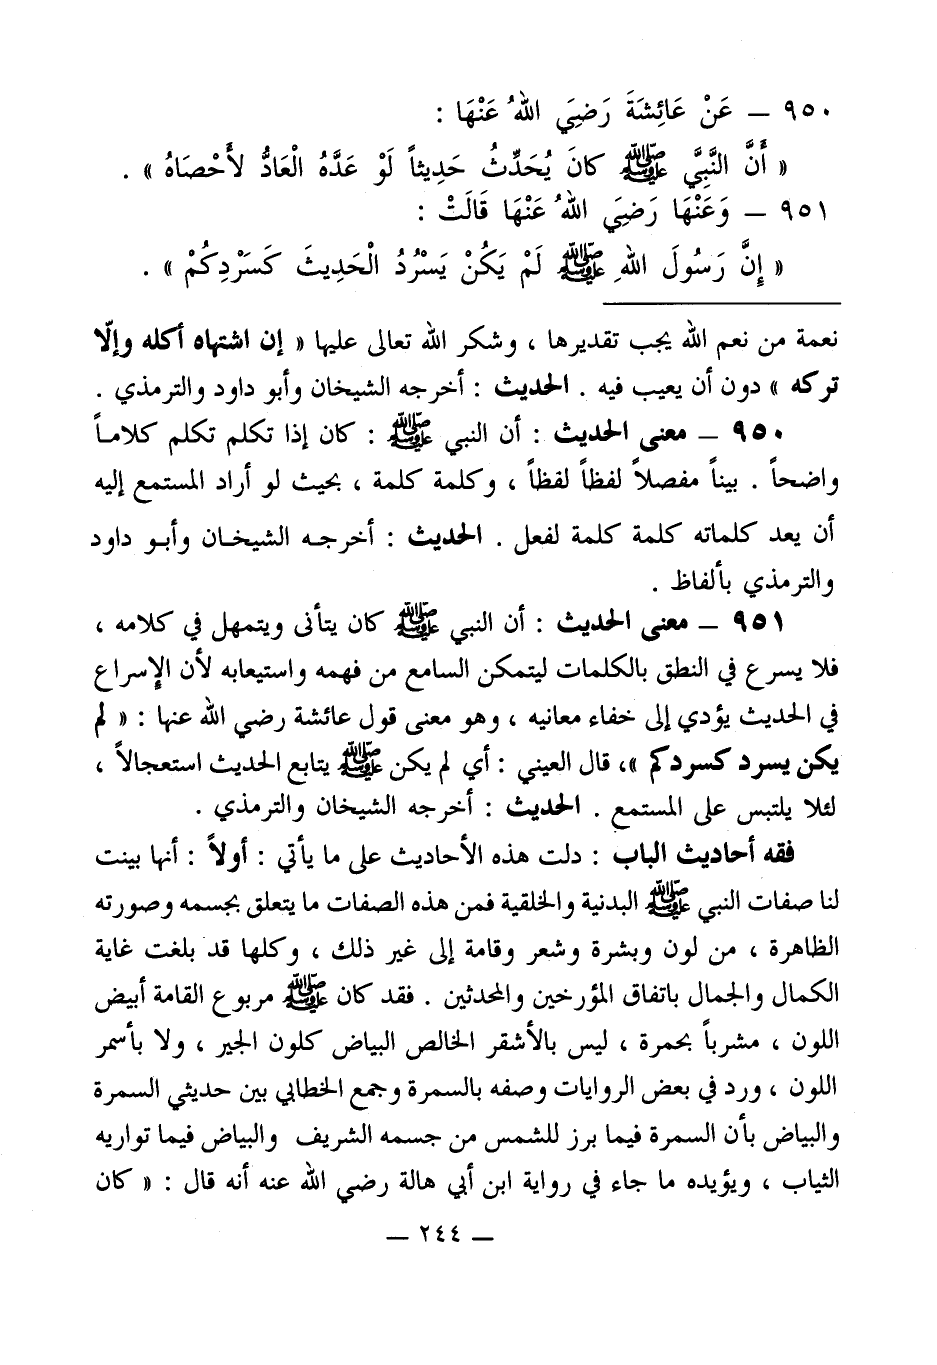 ٩٥٠ ــ عَنْ عَائِشَةَ رَضِيَ اللهُ عَنْهَا :
« أَنَّ النَّبِيَّ ﷺ كَانَ يُحَدِّثُ حَدِيثاً لَوْ عَدَّهُ الْعَادُّ لأَحْصَاهُ » .
٩٥١ ــ وَعَنْهَا رَضِيَ اللهُ عَنْهَا قَالَتْ :
« إِنَّ رَسُولَ اللهِ ﷺ لَمْ يَكُنْ يَسْرُدُ الْحَدِيثَ كَسَرْدِكُمْ » .
نعمة من نعم الله يجب تقديرها ، وشكر الله تعالى عليها « إن اشتهاه أكله وإلّا
تركه » دون أن يعيب فيه . الحديث : أخرجه الشيخان وأبو داود والترمذي .
٩٥٠ ــ معنى الحديث : أن النبي ﷺ : كان إذا تكلم تكلم كلاماً
واضحاً . بيناً مفصلاً لفظاً لفظاً ، وكلمة كلمة ، بحيث لو أراد المستمع إليه
أن يعد كلماته كلمة كلمة لفعل . الحديث : أخرجه الشيخان وأبو داود
والترمذي بألفاظ .
٩٥١ ــ معنى الحديث : أن النبي ﷺ كان يتأنى ويتمهل في كلامه ،
فلا يسرع في النطق بالكلمات ليتمكن السامع من فهمه واستيعابه لأن الإسراع
في الحديث يؤدي إلى خفاء معانيه ، وهو معنى قول عائشة رضي الله عنها : « لم
يكن يسرد كسردكم »، قال العيني : أي لم يكن ﷺ يتابع الحديث استعجالاً ،
لئلا يلتبس على المستمع . الحديث : أخرجه الشيخان والترمذي .
فقه أحاديث الباب : دلت هذه الأحاديث على ما يأتي : أولاً : أنها بينت
لنا صفات النبي ﷺ البدنية والخلقية فمن هذه الصفات ما يتعلق بجسمه وصورته
الظاهرة ، من لون وبشرة وشعر وقامة إلى غير ذلك ، وكلها قد بلغت غاية
الكمال والجمال باتفاق المؤرخين والمحدثين . فقد كان ﷺ مربوع القامة أبيض
اللون ، مشرباً بحمرة ، ليس بالأشقر الخالص البياض كلون الجير ، ولا بأسمر
اللون ، ورد في بعض الروايات وصفه بالسمرة وجمع الخطابي بين حديثي السمرة
والبياض بأن السمرة فيما برز للشمس من جسمه الشريف والبياض فيما تواريه
الثياب ، ويؤيده ما جاء في رواية ابن أبي هالة رضي الله عنه أنه قال : « كان
ــ ٢٤٤ ــ